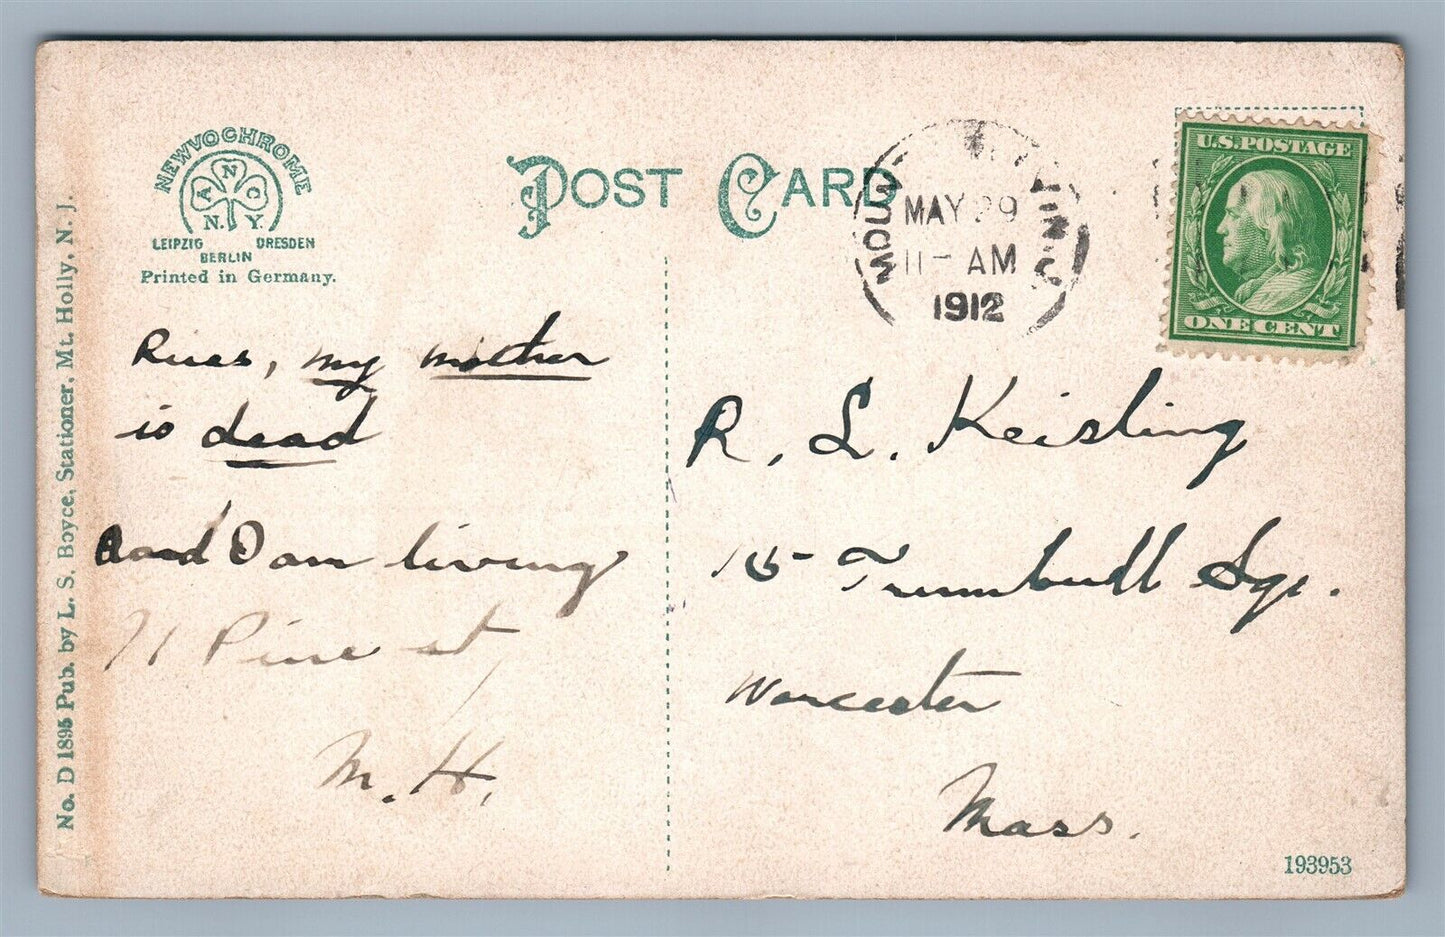 NEWVOCHROME
A N C
N. Y.
LEIPZIG DRESDEN
BERLIN
Printed in Germany.
POST CARD
MAY 29
11- AM
1912
N.J.
U.S. POSTAGE
ONE CENT
No. D 1895 Pub. by L. S. Boyce, Stationer, Mt. Holly, N. J.
my mother
is dead
and I am living
71 Pine st,
M. H.
R. L. Keisling
15 Trumbull Sqr.
Worcester
Mass.
193953